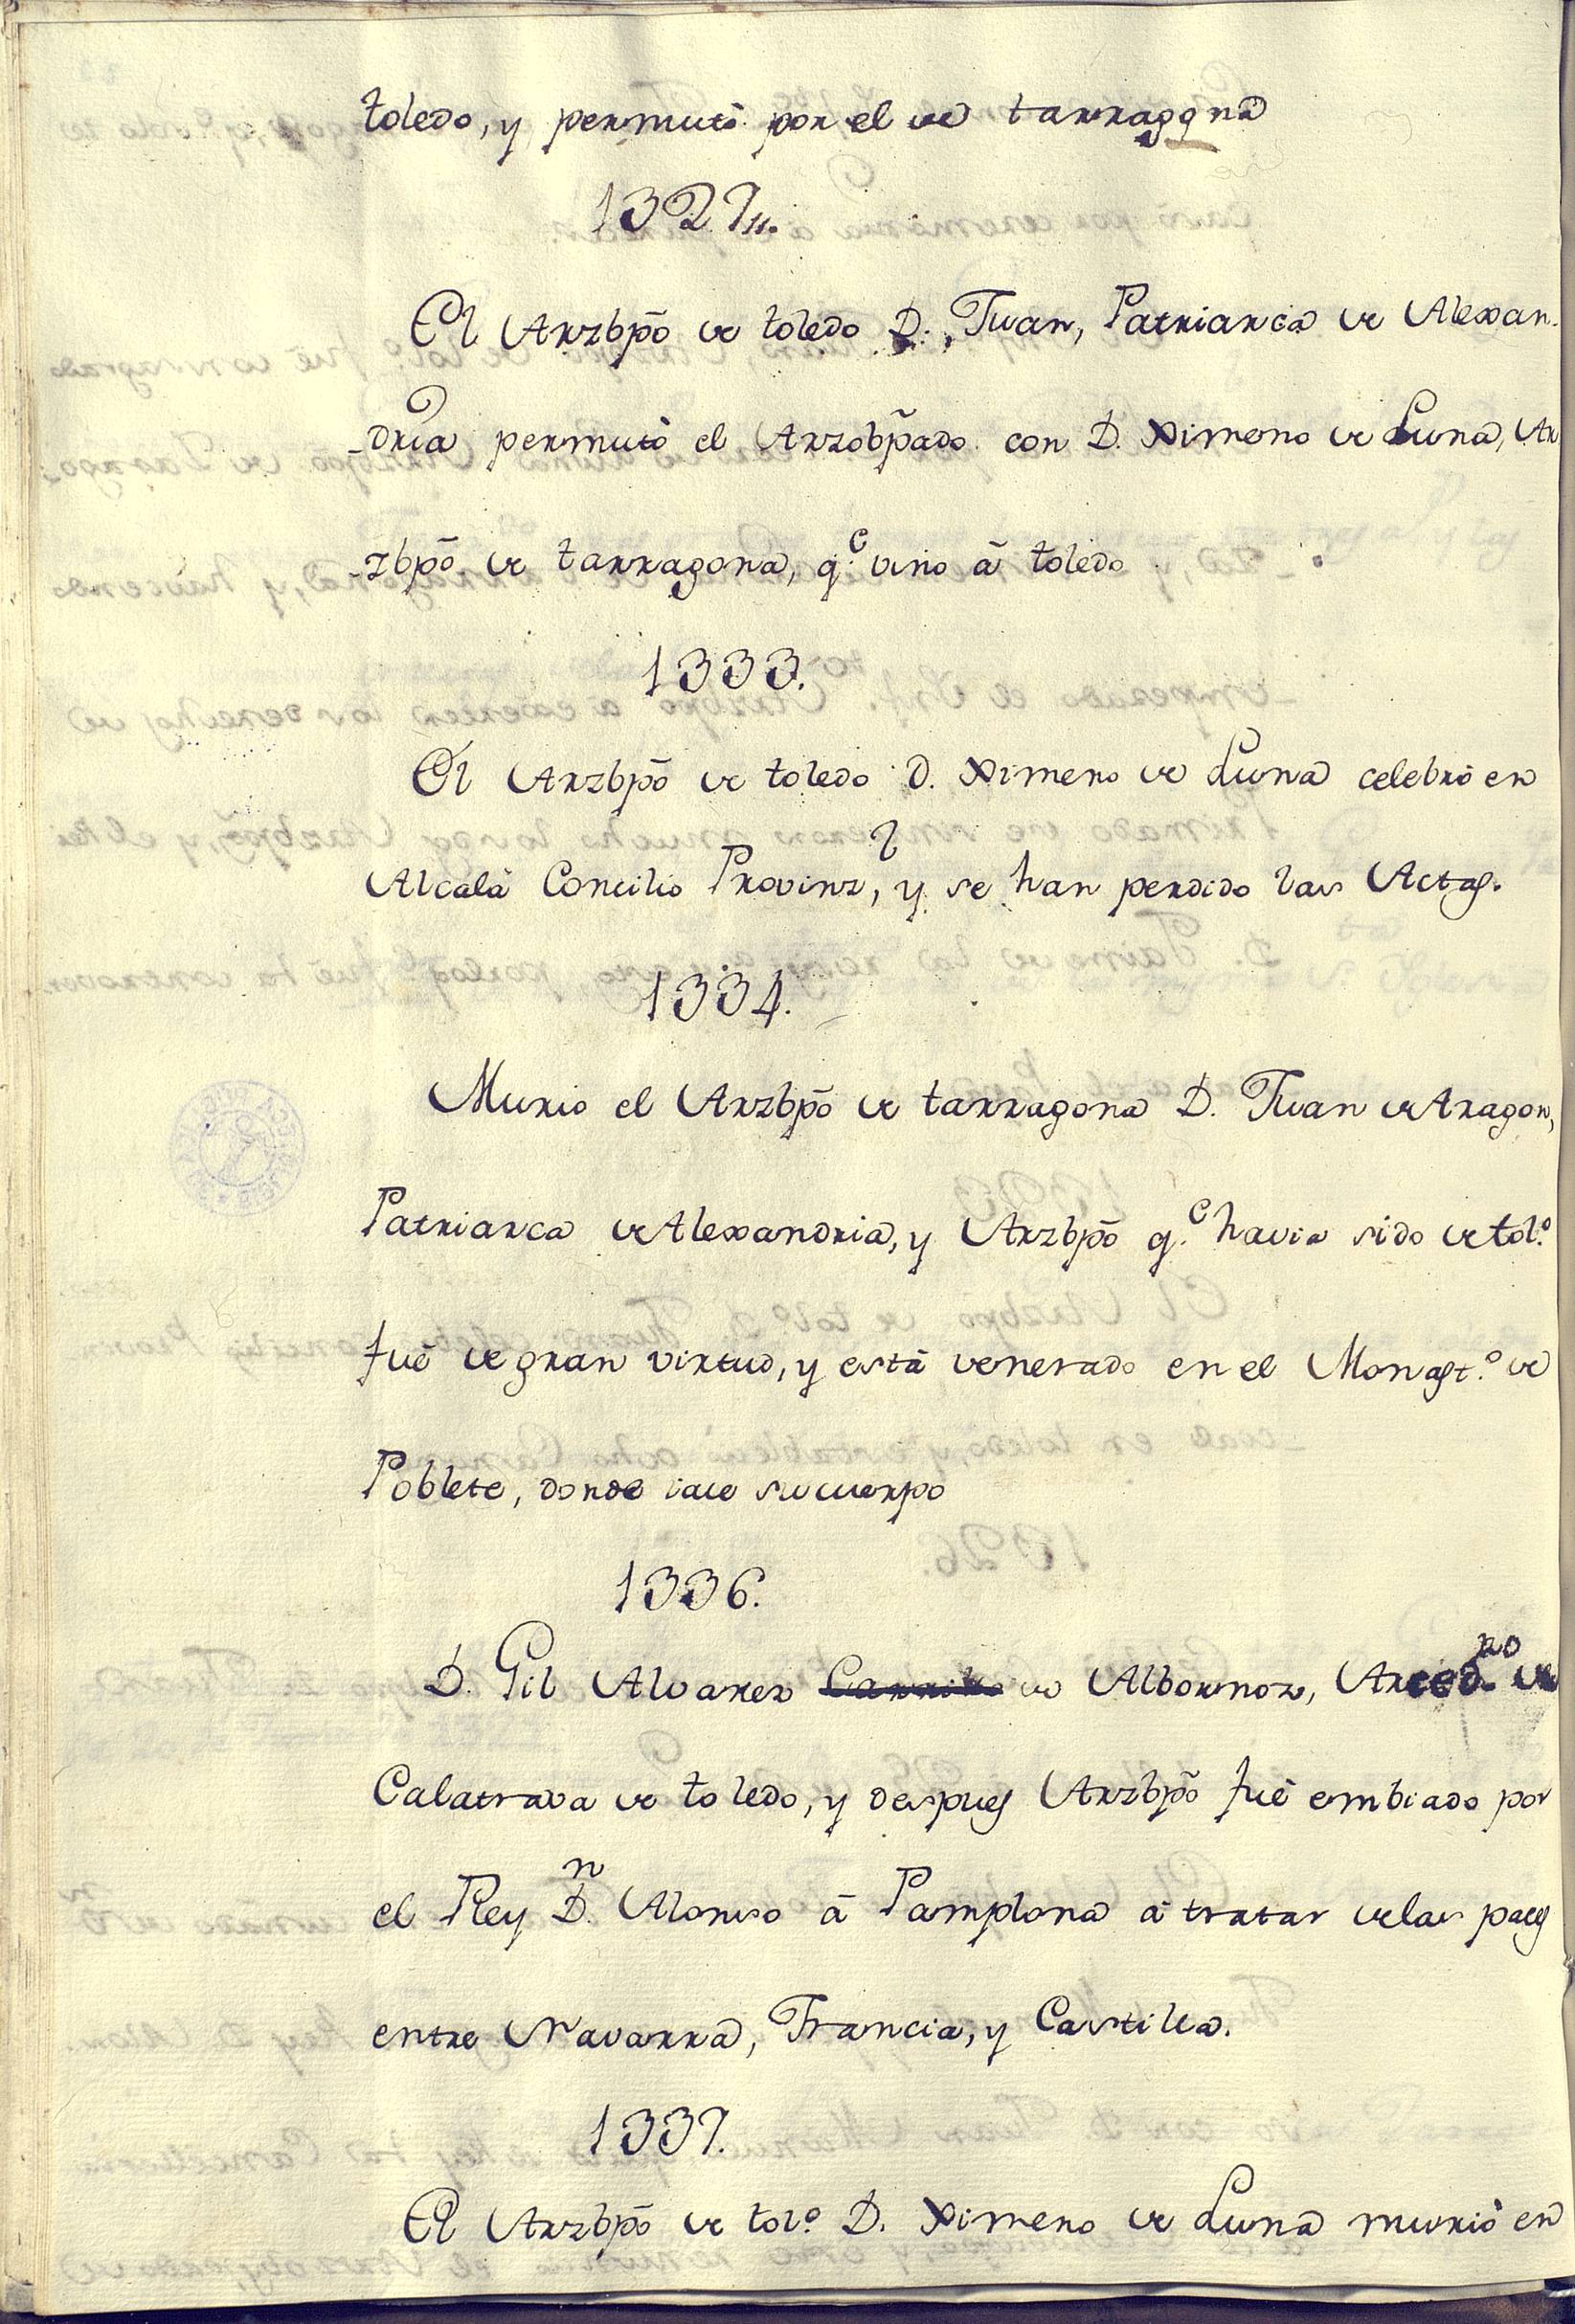 toledo, y permutò por el de tarragona
1327//.
El Arzbpõ de toledo D. Juan, Patriarca de Alexan-
-dria permutò el Arzobp̃ado con D. Ximeno de Luna, Ar
-zbpõ de tarragona, q.e vino à toledo
1333.
El Arzbpõ de toledo D. Ximeno de Luna celebrò en
Alcalà Concilio Provinz.l, y se han perdido las Actas.
1334.
Murio el Arzbpõ de tarragona D. Juan de Aragon,
Patriarca de Alexandria, y Arzbpõ q.e havia sido de tol.o
fuè de gran virtud, y està venerado en el Monast.o de
Poblete, donde iace su cuerpo
1336.
D. Gil Alvarez Carrillo de Albornoz, Arced.no de
Calatrava de toledo, y despues Arzbpõ fuè embiado por
el Rey D.n Alonso à Pamplona à tratar de las paces
entre Navarra, Francia, y Castilla.
1337.
El Arzbpõ de tol.o D. Ximeno de Luna muriò en